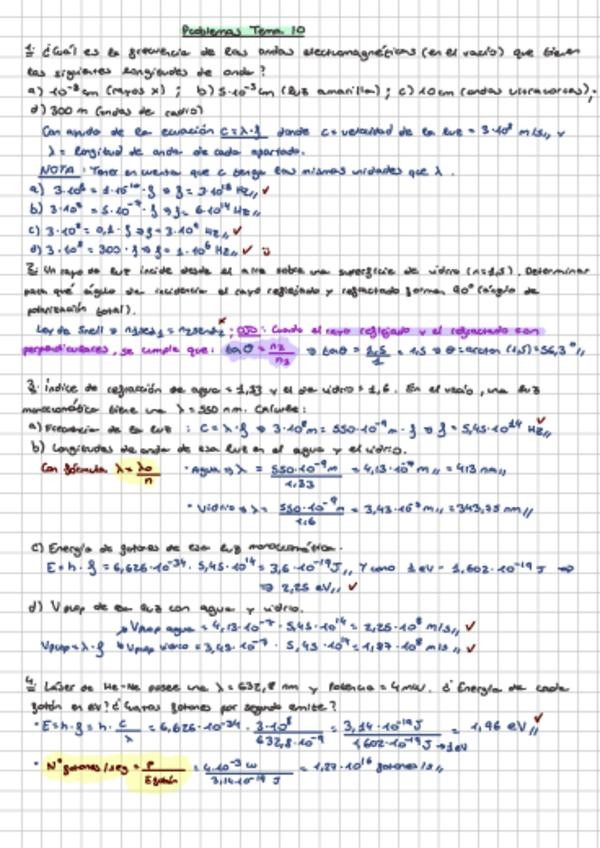 Problemas Tema 10
1. ¿Cuál es la frecuencia de las ondas electromagnéticas (en el vacío) que tienen
las siguientes longitudes de onda?
a) 10⁻⁸ cm (rayos x) ; b) 5·10⁻⁵ cm (luz amarilla) ; c) 10 cm (ondas ultracortas) ;
d) 300 m (ondas de radio)
Con ayuda de la ecuación c = λ·f donde c = velocidad de la luz = 3·10⁸ m/s,, y
λ = longitud de onda de cada apartado.
NOTA : Tener en cuenta que c tenga las mismas unidades que λ.
a) 3·10⁸ = 1·10⁻¹⁰ · f ⇒ f = 3·10¹⁸ Hz,, ✓
b) 3·10⁸ = 5·10⁻⁷ · f ⇒ f = 6·10¹⁴ Hz,, ✓
c) 3·10⁸ = 0,1 · f ⇒ f = 3·10⁹ Hz,, ✓
d) 3·10⁸ = 300 · f ⇒ f = 1·10⁶ Hz,, ✓
2. Un rayo de luz incide desde el aire sobre una superficie de vidrio (n=1,5). Determinar
para qué ángulo de incidencia el rayo reflejado y refractado forman 90° (ángulo de
polarización total).
Ley de Snell ⇒ ; OJO: Cuando el rayo reflejado y el refractado son
perpendiculares, se cumple que: tan θ = n₂/n₁ ⇒ tan θ = 1,5/1 = 1,5 ⇒ θ = arctan (1,5) = 56,3°,,
3. Índice de refracción de agua = 1,33 y el de vidrio = 1,6. En el vacío, una luz
monocromática tiene una λ = 550 nm. Calcule:
a) Frecuencia de la luz : c = λ·f ⇒ 3·10⁸ m = 550·10⁻⁹ m · f ⇒ f = 5,45·10¹⁴ Hz,, ✓
b) Longitudes de onda de esa luz en el agua y el vidrio.
Con fórmula λ = λ₀/n · Agua ⇒ λ = 550·10⁻⁹ m / 1,33 = 4,13·10⁻⁷ m,, = 413 nm,,
· Vidrio ⇒ λ = 550·10⁻⁹ m / 1,6 = 3,43·10⁻⁷ m,, = 343,75 nm,,
c) Energía de fotones de esa luz monocromática.
E = h · f = 6,626·10⁻³⁴ · 5,45·10¹⁴ = 3,6·10⁻¹⁹ J,, Y como 1 eV = 1,602·10⁻¹⁹ J ⇒
⇒ 2,25 eV,, ✓
d) Vprop de esa luz con agua y vidrio.
Vprop agua = 4,13·10⁻⁷ · 5,45·10¹⁴ = 2,25·10⁸ m/s,, ✓
Vprop = λ·f Vprop vidrio = 3,43·10⁻⁷ · 5,45·10¹⁴ = 1,87·10⁸ m/s,, ✓
4. Láser de He-Ne posee una λ = 632,8 nm y Potencia = 4 mW. ¿Energía de cada
fotón en eV? ¿Cuántos fotones por segundo emite?
· E = h·f = h · c/λ = 6,626·10⁻³⁴ · 3·10⁸ / 632,8·10⁻⁹ = 3,14·10⁻¹⁹ J / 1,602·10⁻¹⁹ J → 1 eV = 1,96 eV,, ✓
· N° fotones/seg = P / Efotón = 4·10⁻³ W / 3,14·10⁻¹⁹ J = 1,27·10¹⁶ fotones/s,,